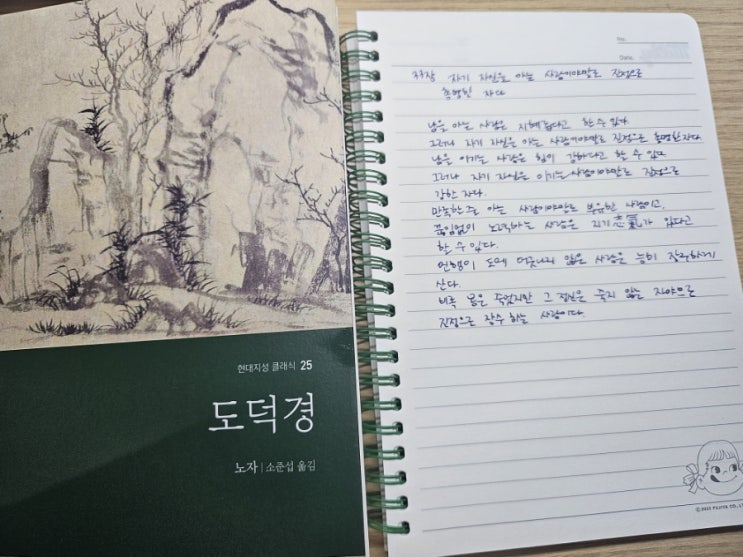 현대지성 클래식 25
도덕경
노자 | 소준섭 옮김
No.
Date.
33장 자기 자신을 아는 사람이야말로 진정으로
총명한 자다
남을 아는 사람은 지혜롭다고 할 수 있다.
그러나 자기 자신을 아는 사람이야말로 진정으로 총명한 자다
남을 이기는 사람은 힘이 강하다고 할 수 있다
그러나 자기 자신을 이기는 사람이야말로 진정으로
강한 자다.
만족할 줄 아는 사람이야말로 부유한 사람이고,
끊임없이 노력하는 사람은 지기志氣가 있다고
할 수 있다.
언행이 도에 어긋나지 않은 사람은 능히 장구하게
산다.
비록 몸은 죽었지만 그 정신은 죽지 않는
진정으로 장수하는 사람이다.